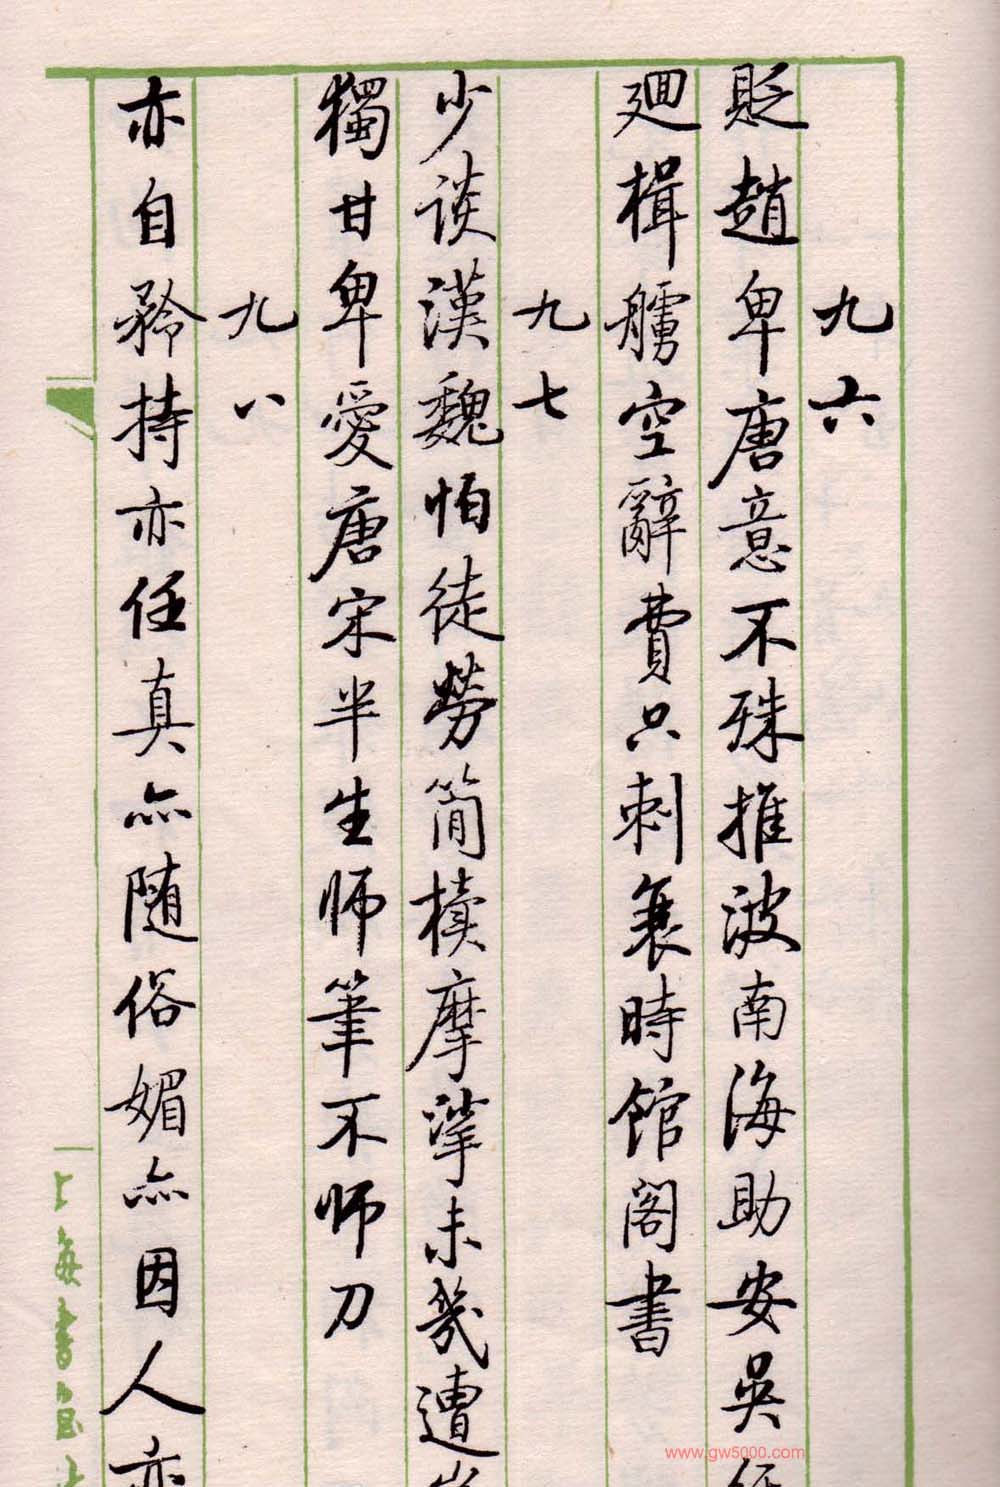 九六
貶趙卑唐意不殊推波南海助安吳
廻楫艣空辭費只刺衰時館閣書
九七
少談漢魏怕徒勞簡牘摩挲未幾遭
獨甘卑愛唐宋半生師筆不師刀
九八
亦自矜持亦任真亦隨俗媚亦因人亦
上海書畫
www.gw5000.com